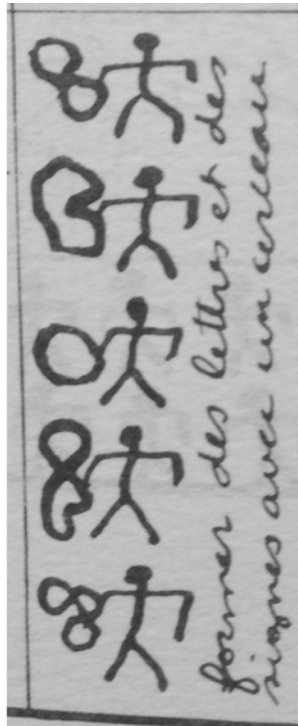 former des lettres et des
signes avec un cerceau